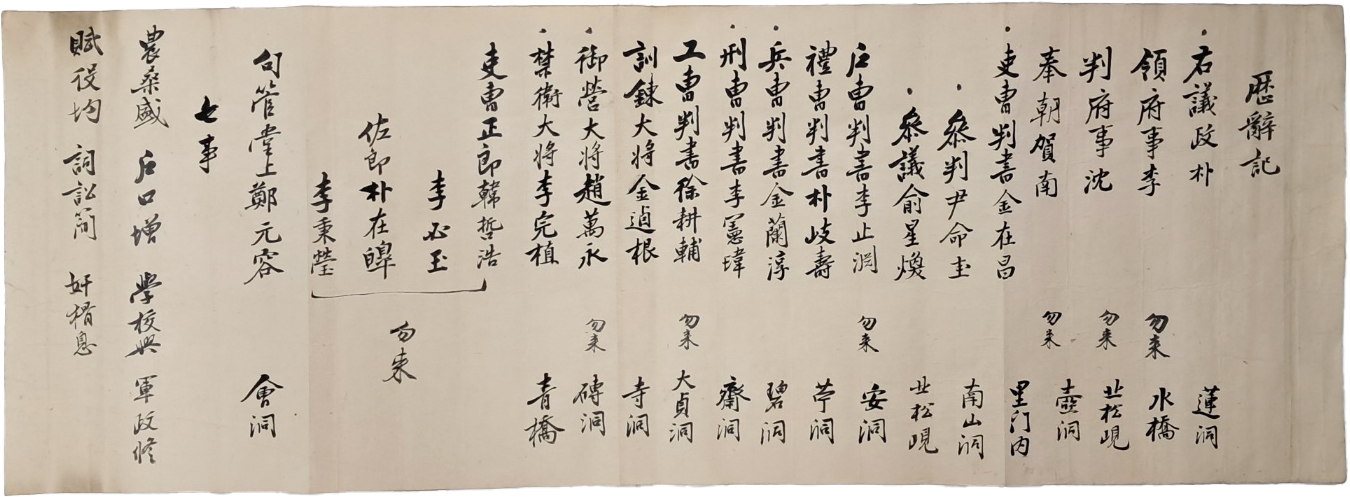 歷辭記
右議政朴 蓮洞
領府事李 勿来 水橋
判府事沈 勿来 北松峴
奉朝賀南 勿来 壺洞
吏曹判書金在昌 里门内
參判尹命圭 南山洞
參議俞星煥 北松峴
戶曹判書李止淵 勿来 安洞
禮曹判書朴岐壽 苧洞
兵曹判書金蘭淳 碧洞
刑曹判書李憲瑋 齋洞
工曹判書徐耕輔 勿来 大貞洞
訓鍊大将金逌根 寺洞
御營大将趙萬永 勿来 磚洞
禁衛大将李完植 青橋
吏曹正郎韓哲浩
李必玉
佐郎朴在皥 勿来
李秉瑩
句管堂上鄭元容 會洞
七事
農桑盛 戶口增 學校興 軍政修
賦役均 詞訟简 奸猾息